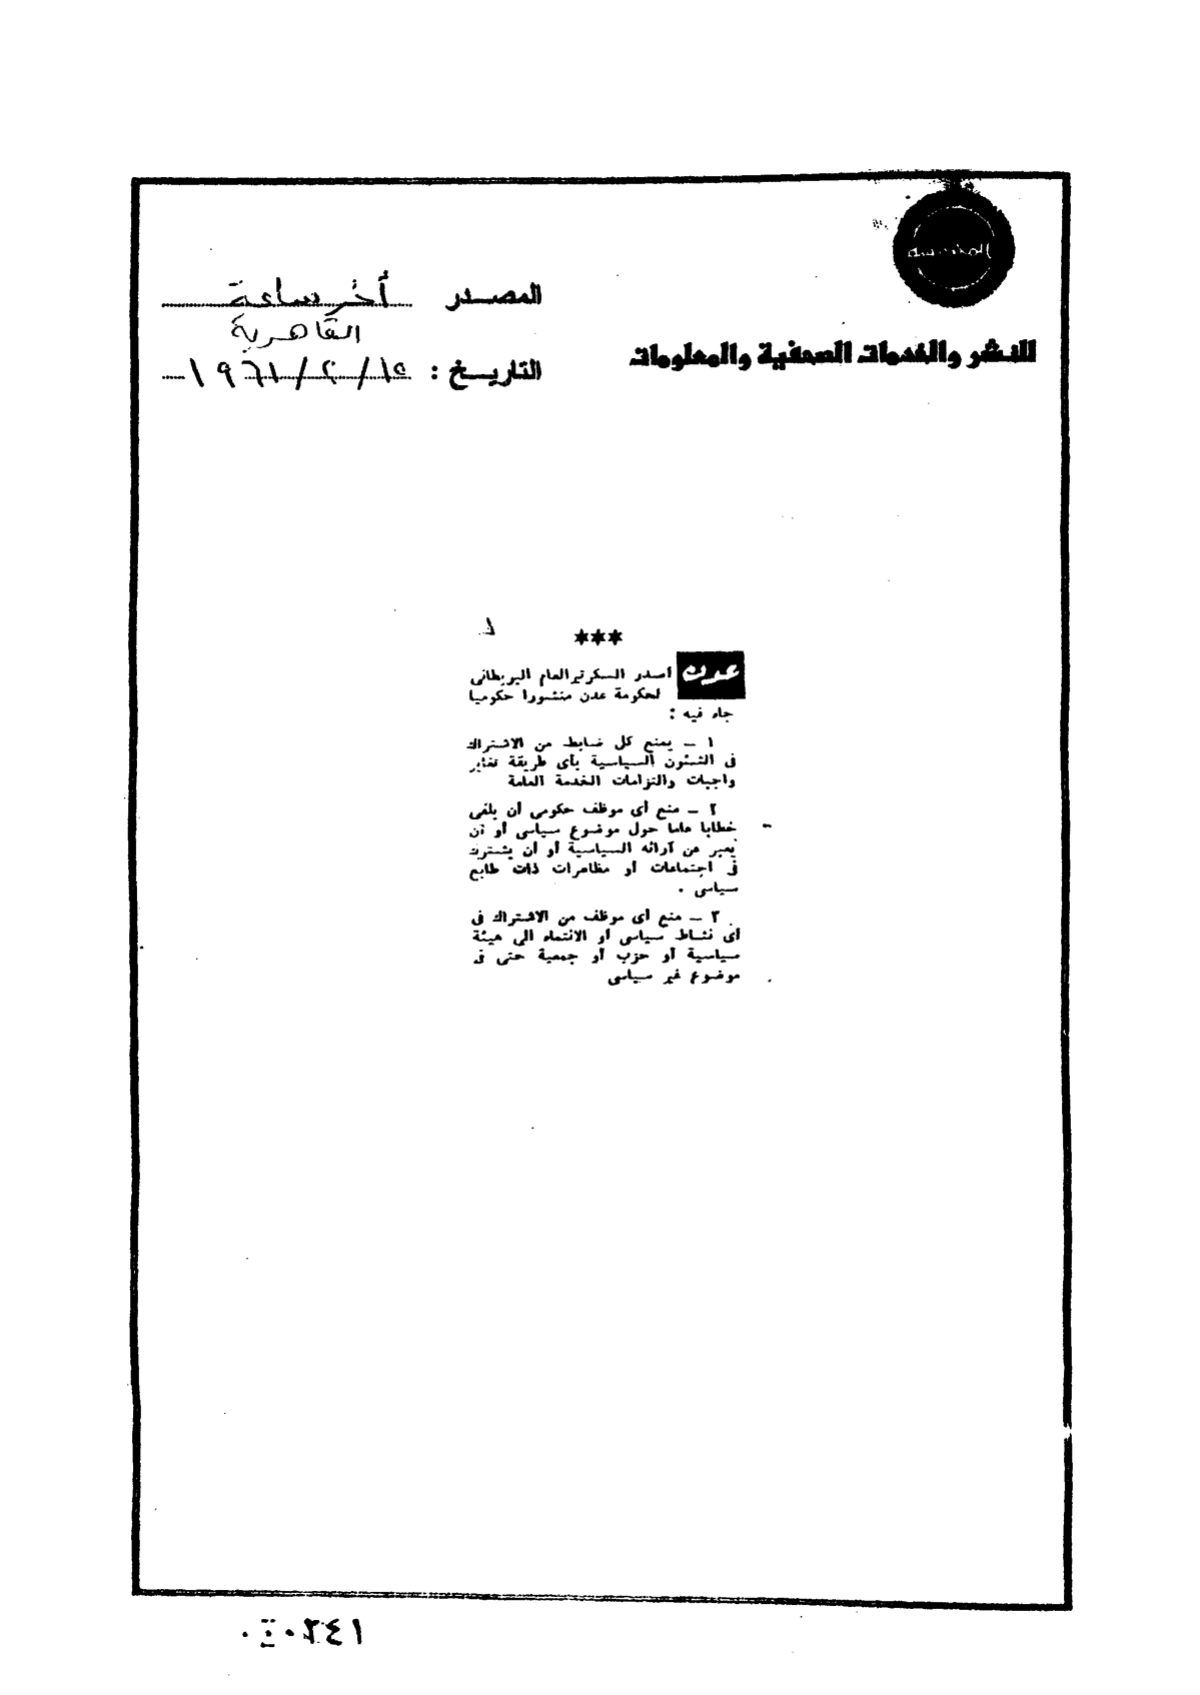 للنشر والخدمات الصحفية والمعلومات
المصدر أخر ساعة
القاهرية
التاريخ : ١٥/٢/١٩٦١
***
عدن أصدر السكرتير العام البريطانى
لحكومة عدن منشورا حكوميا
جاء فيه :
١ – يمنع كل ضابط من الاشتراك
فى الشئون السياسية بأى طريقة تغاير
واجبات والتزامات الخدمة العامة
٢ – منع أى موظف حكومى أن يلقى
خطابا عاما حول موضوع سياسى أو أن
يعبر عن آرائه السياسية أو أن يشترك
فى اجتماعات أو مظاهرات ذات طابع
سياسى .
٣ – منع أى موظف من الاشتراك فى
أى نشاط سياسى أو الانتماء الى هيئة
سياسية أو حزب أو جمعية حتى فى
موضوع غير سياسى